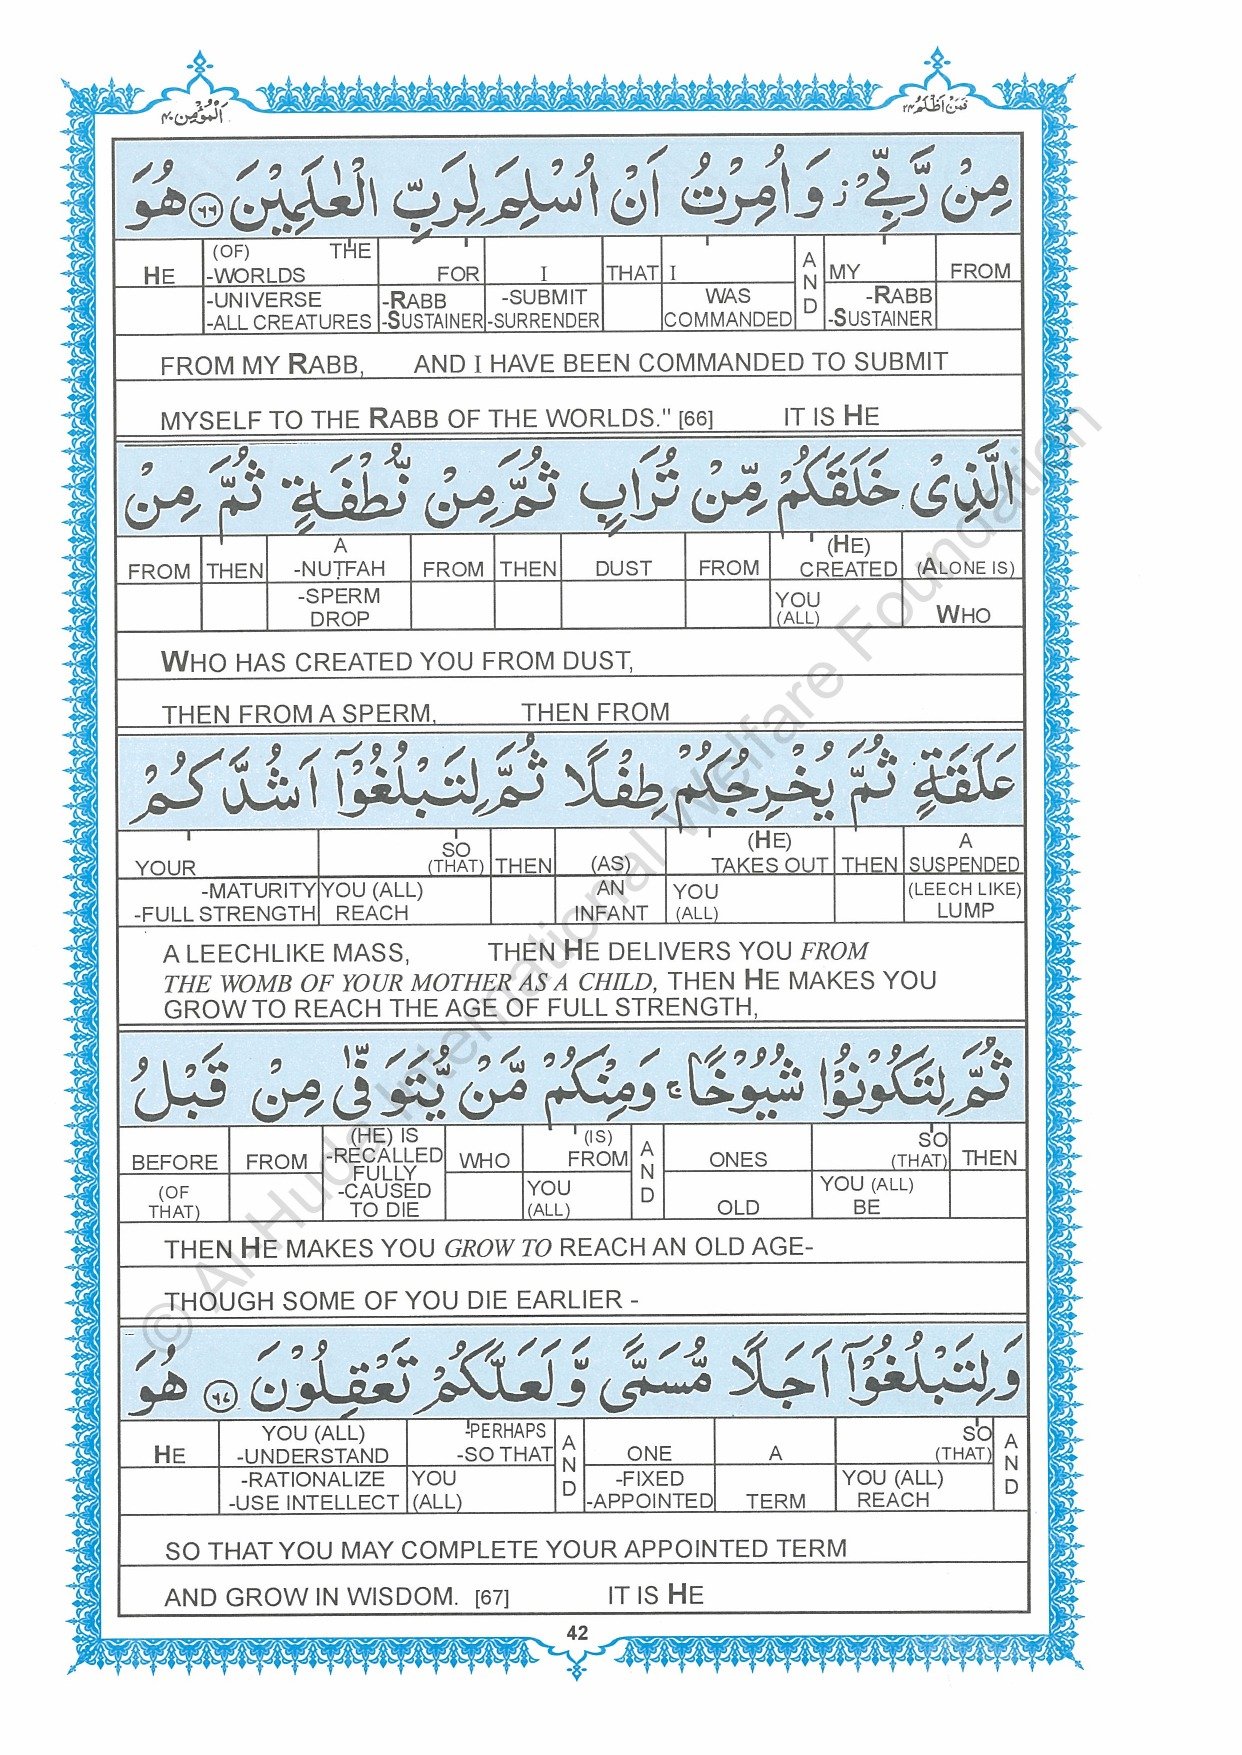 اَلْمُؤْمِن ٤٠
فَمَنْ اَظْلَمُ ٢٤
مِنْ رَّبِّيْ ز وَاُمِرْتُ اَنْ اُسْلِمَ لِرَبِّ الْعٰلَمِيْنَ ﴿٦٦﴾ هُوَ
HE (OF) THE FOR I THAT I A MY FROM
-WORLDS N
-UNIVERSE -RABB -SUBMIT WAS D -RABB
-ALL CREATURES -SUSTAINER -SURRENDER COMMANDED -SUSTAINER
FROM MY RABB, AND I HAVE BEEN COMMANDED TO SUBMIT
MYSELF TO THE RABB OF THE WORLDS." [66] IT IS HE
الَّذِىْ خَلَقَكُمْ مِّنْ تُرَابٍ ثُمَّ مِنْ نُّطْفَةٍ ثُمَّ مِنْ
A (HE)
FROM THEN -NUṬFAH FROM THEN DUST FROM CREATED (ALONE IS)
-SPERM YOU WHO
DROP (ALL)
WHO HAS CREATED YOU FROM DUST,
THEN FROM A SPERM, THEN FROM
عَلَقَةٍ ثُمَّ يُخْرِجُكُمْ طِفْلًا ثُمَّ لِتَبْلُغُوْٓا اَشُدَّكُمْ
SO (HE) A
YOUR (THAT) THEN (AS) TAKES OUT THEN SUSPENDED
-MATURITY YOU (ALL) AN YOU (LEECH LIKE)
-FULL STRENGTH REACH INFANT (ALL) LUMP
A LEECHLIKE MASS, THEN HE DELIVERS YOU FROM
THE WOMB OF YOUR MOTHER AS A CHILD, THEN HE MAKES YOU
GROW TO REACH THE AGE OF FULL STRENGTH,
ثُمَّ لِتَكُوْنُوْا شُيُوْخًا ۚ وَمِنْكُمْ مَّنْ يُّتَوَفّٰى مِنْ قَبْلُ
(HE) IS (IS) A SO
BEFORE FROM -RECALLED WHO FROM N ONES (THAT) THEN
FULLY
(OF -CAUSED YOU D YOU (ALL)
THAT) TO DIE (ALL) OLD BE
THEN HE MAKES YOU GROW TO REACH AN OLD AGE-
THOUGH SOME OF YOU DIE EARLIER -
وَلِتَبْلُغُوْٓا اَجَلًا مُّسَمًّى وَّلَعَلَّكُمْ تَعْقِلُوْنَ ﴿٦٧﴾ هُوَ
YOU (ALL) -PERHAPS A SO A
HE -UNDERSTAND -SO THAT N ONE A (THAT) N
-RATIONALIZE YOU D -FIXED YOU (ALL) D
-USE INTELLECT (ALL) -APPOINTED TERM REACH
SO THAT YOU MAY COMPLETE YOUR APPOINTED TERM
AND GROW IN WISDOM. [67] IT IS HE
42
© Al-Huda International Welfare Foundation